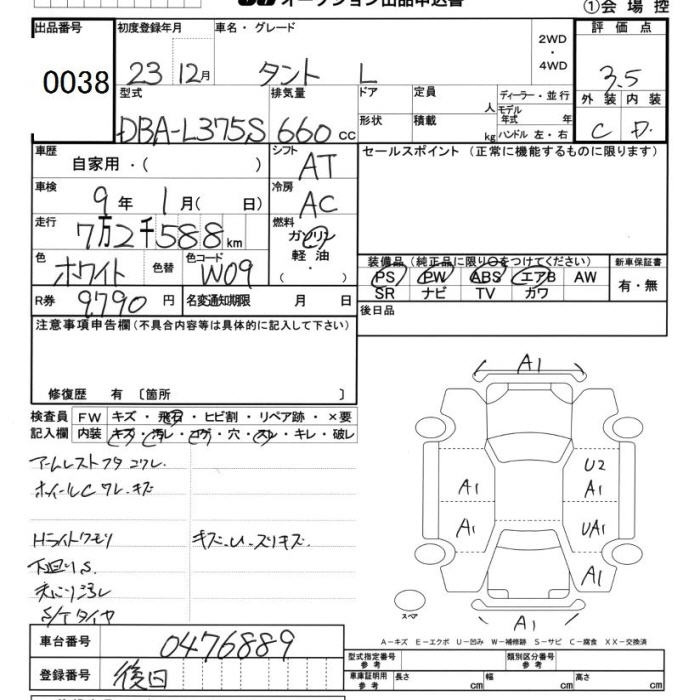 オークション出品申込書
①会場控
出品番号
0038
初度登録年月
23 12月
車名・グレード
タント L
2WD
・
4WD
評価点
3.5
外装 内装
C D
型式
DBA-L375S
排気量
660 cc
ドア
定員
人
ディーラー・並行
モデル年式 年
形状
積載
kg
ハンドル 左・右
車歴
自家用・( )
シフト
AT
セールスポイント(正常に機能するものに限ります)
車検
9年 1月( 日)
冷房
AC
走行
7万2千588km
燃料
ガソリン
軽油
( ・ )
色
ホワイト
色替
色コード
W09
装備品(純正品に限り○をつけてください)
PS PW ABS エアB AW
SR ナビ TV カワ
新車保証書
有・無
R券 9790円
名変通知期限 月 日
後日品
注意事項申告欄(不具合内容等は具体的に記入して下さい)
修復歴 有〔箇所 〕
検査員記入欄
FW キズ・飛石・ヒビ割・リペア跡・×要
内装 キズ・汚レ・コゲ・穴・スレ・キレ・破レ
アームレストフタコワレ
ホイールCワレ、キズ
Hライトクモリ
キズ、U、スリキズ
下回りS
S/Tタイヤ
A1
U2
A1
A1
A1
UA1
A1
スペア
A1
A-キズ E-エクボ U-凹み W-補修跡 S-サビ C-腐食 XX-交換済
車台番号
0476889
登録番号
後日
型式指定番号
参考
類別区分番号
参考
車庫証明用
参考
長さ cm
幅 cm
高さ cm